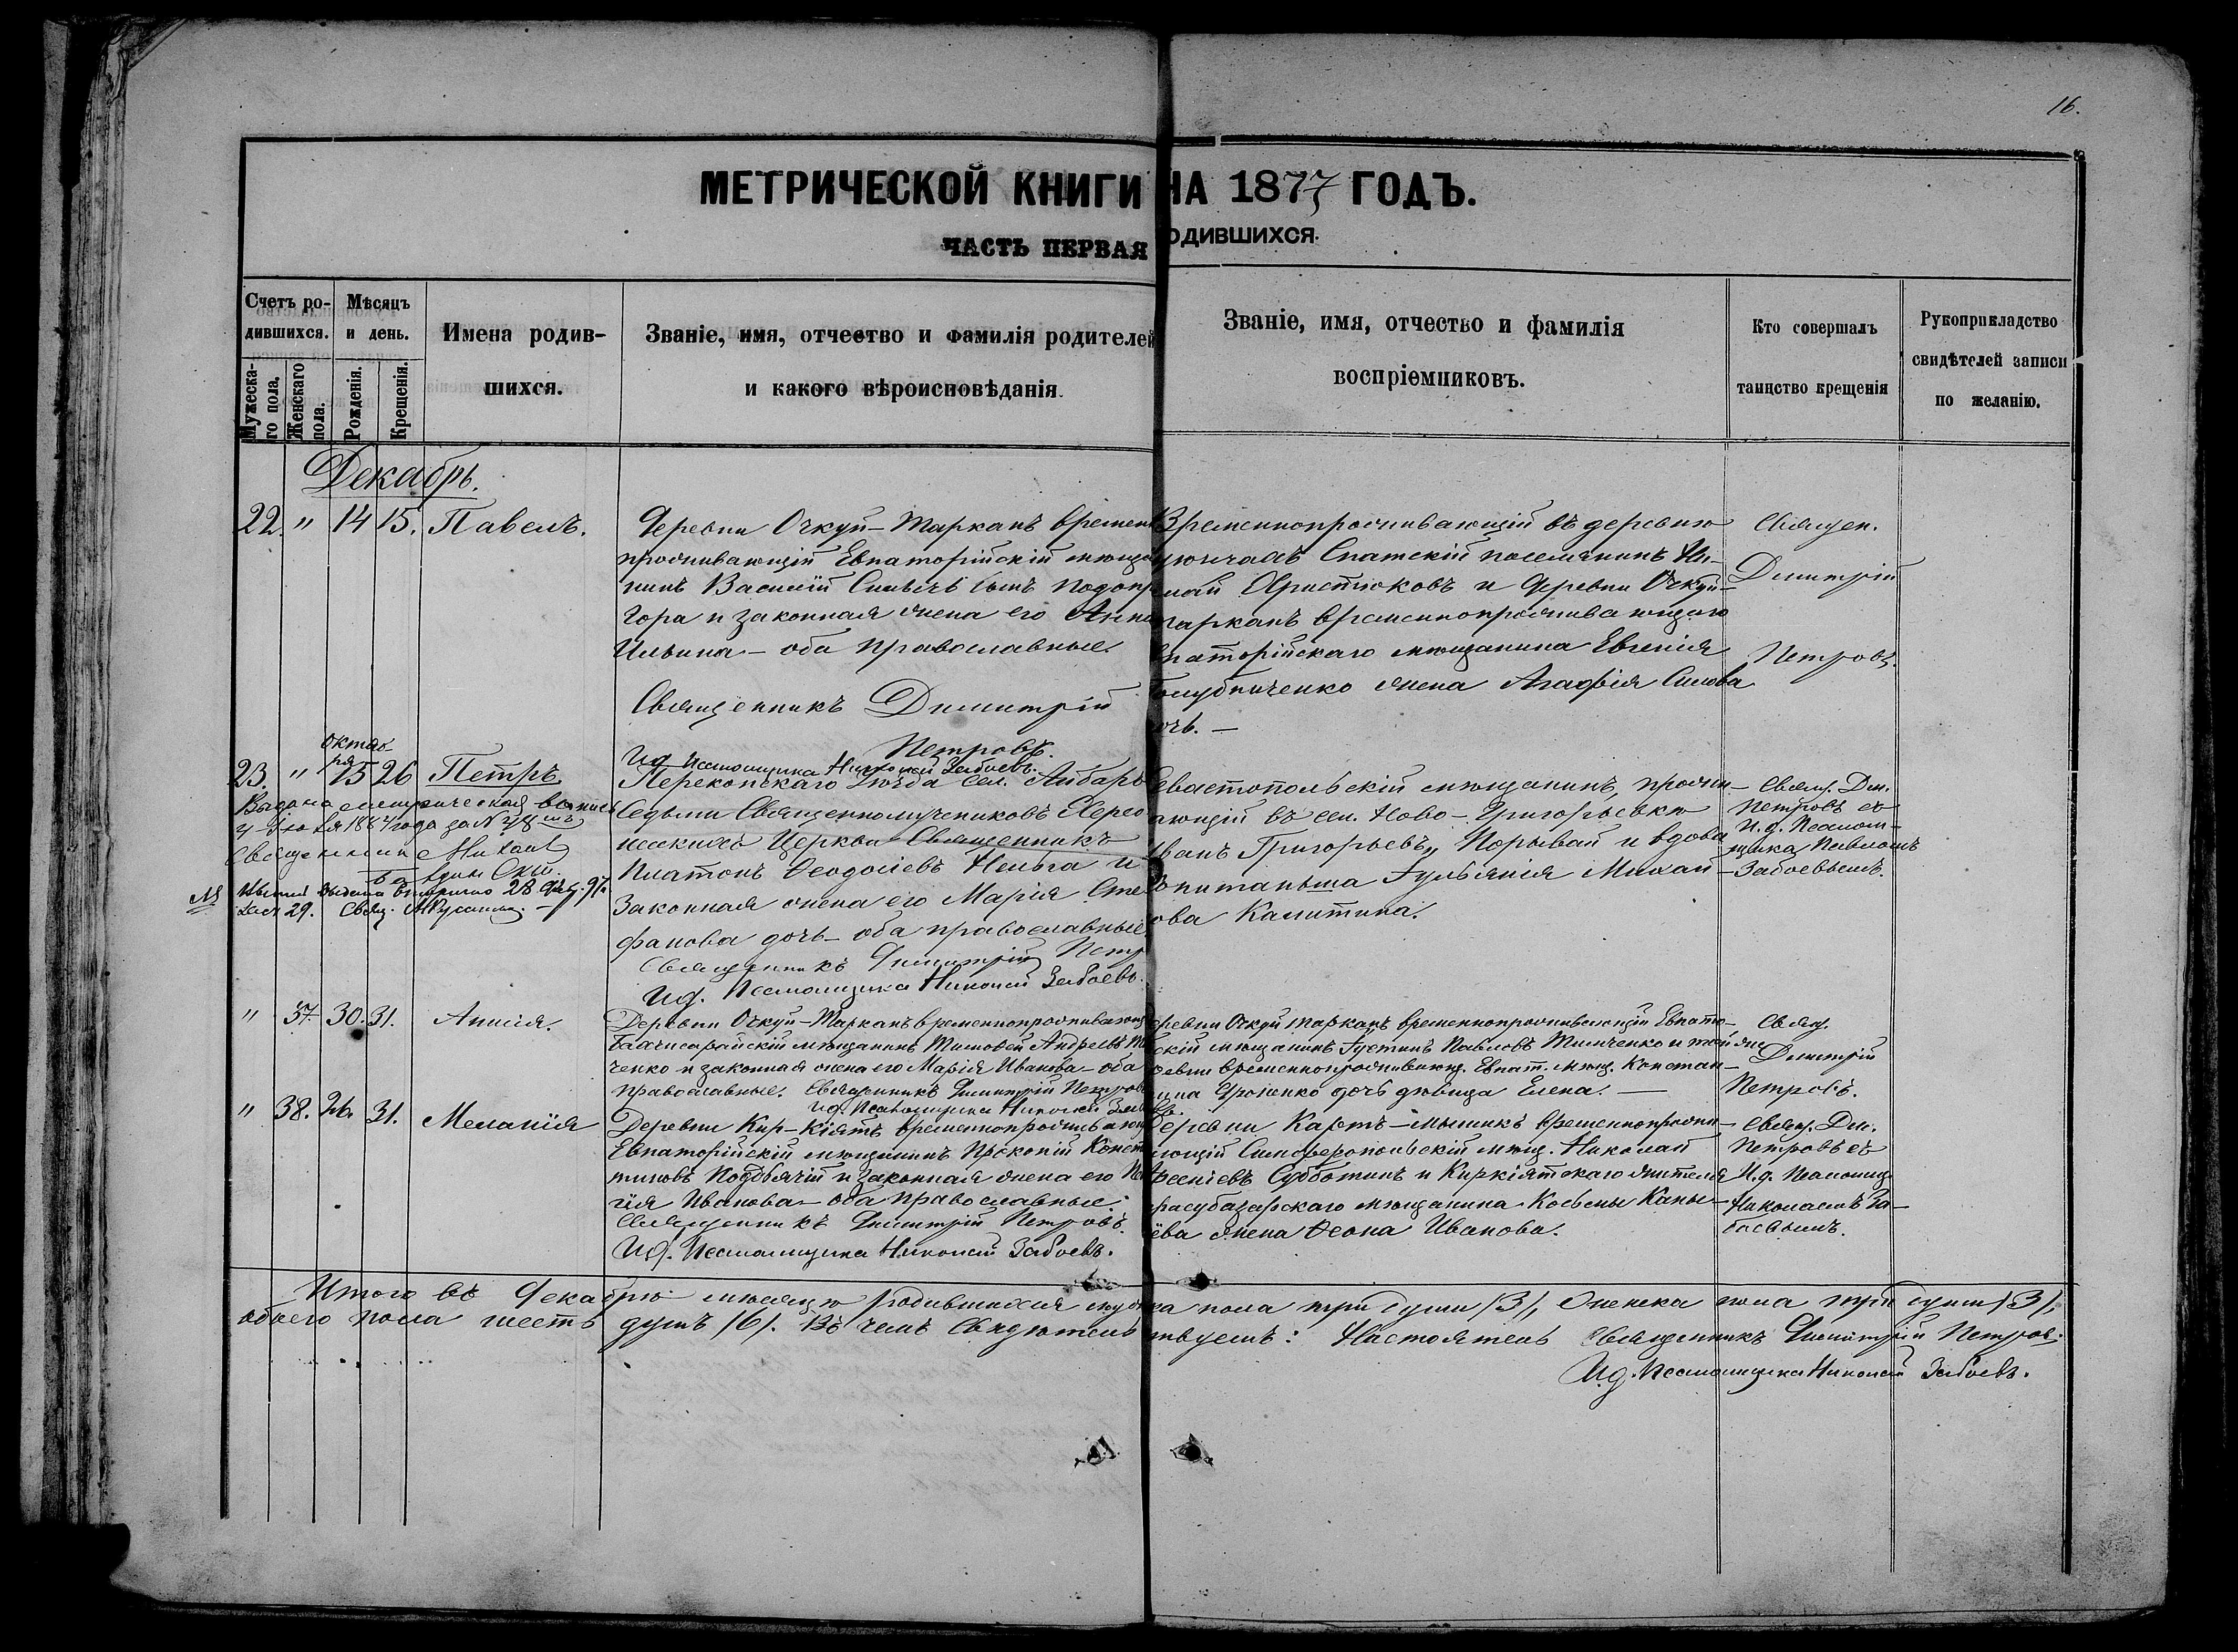 16.
МЕТРИЧЕСКОЙ КНИГИ НА 1877 ГОДЪ.
ЧАСТЬ ПЕРВАЯ ОДИВШИХСЯ.
Счетъ ро-
дившихся.
Мужеска-
го пола.
Женскаго
пола.
Мѣсяцъ
и день.
Рожденія.
Крещенія.
Имена родив-
шихся.
Званіе, имя, отчество и фамилія родителей
и какого вѣроисповѣданія.
Званіе, имя, отчество и фамилія
воспріемниковъ.
Кто совершалъ
таинство крещенія
Рукоприкладство
свидѣтелей записи
по желанію.
Декабрь.
22. " 14 15. Павелъ.
Деревни Очкуй-Тарканъ времен
проживающій Евпаторійскій мѣща
нинъ Василій сынъ Подопр
гора и законная жена его Анна
Ильина – оба православные.
Священникъ Димитрій
Петровъ.
И.д. Псаломщика Николай Забоевъ.
Временнопроживающій въ деревнѣ
Спатскій поселянинъ Ни-
лай Христюковъ и деревни Очкуй-
тарканъ временнопроживающаго
паторійскаго мѣщанина Евгенія
олубниченко жена Агафія Силова
очь. –
Священ.
Димитрій
Петровъ.
октяб-
ря
23. " 15 26 Петръ
Выдана метрическая выпись
Священникъ Михаилъ
Перекопскаго уѣзда сел. Айбаръ
Седьми Священномучениковъ Херсо
нскихъ Церкви Священникъ
Платонъ Ѳеодосіевъ и
Законная жена его Марія Сте
фанова дочь – оба православные.
Священникъ Димитрій Петр
И.д. Псаломщика Николай Забоевъ.
евастопольскій мѣщанинъ, прожи-
ающій въ сел. Ново-Григорьевкѣ
ванъ Григорьевъ Порывай и вдова
Іуліанія Михай-
ова Калитина.
Священ. Дим.
Петровъ съ
И.д. Псалом-
щика
Забоевымъ.
" 37. 30. 31. Анисія.
Деревни Очкуй-Тарканъ временнопроживающ
Бахчисарайскій мѣщанинъ Тимофей Андреевъ Ти
ченко и законная жена его Марія Иванова – оба
православные. Священникъ Димитрій Петровъ
И.д. Псаломщика Николай Забоевъ.
еревни Очкуй тарканъ временнопроживающій Евпато-
скій мѣщанинъ Іустинъ Павловъ Тимченко и той же
ревни временнопроживающ. Евпат. мѣщ. Констан-
ина дочь дѣвица Елена. –
Свящ.
Димитрій
Петровъ.
" 38. 26. 31. Меланія
Деревни Кир-Кіятъ временнопроживающ
Евпаторійскій мѣщанинъ Прокопій Конст
тиновъ Поддьячій и законная жена его Пе
гія Иванова – оба православные.
Священникъ Димитрій Петровъ.
И.д. Псаломщика Николай Забоевъ.
Деревни временнопрожи-
ющій Симферопольскій мѣщ. Николай
Арсеніевъ Субботинъ и Киркіятскаго жителя
расубазарскаго мѣщанина Косьмы Каны-
ева жена Ѳеона Иванова.
Свящ. Дим.
Петровъ съ
И.д. Псаломщ.
Николаемъ За-
боевымъ.
Итого въ Декабрѣ мѣсяцѣ родившихся мужес ка пола три души /3/, женска пола три души /3/,
обоего пола шесть душъ /6/. Въ чемъ свидѣтель твуемъ: Настоятель священникъ Димитрій Петровъ.
И.д. Псаломщика Николай Забоевъ.